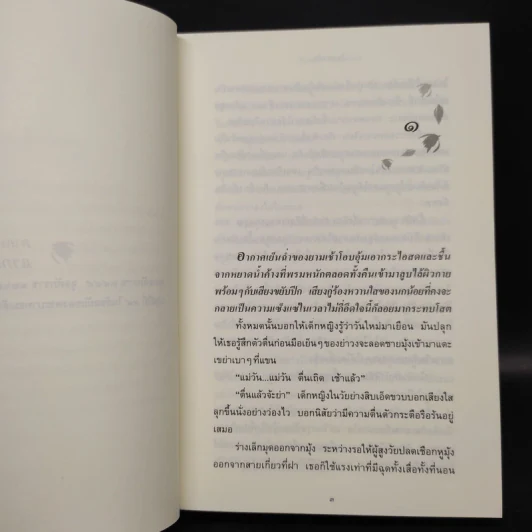 ๑
อากาศเย็นฉ่ำของยามเช้าโอบอุ้มเอากระไอสดและชื้น
จากหยาดน้ำค้างที่พรมหนักตลอดทั้งคืนเข้ามาลูบไล้ผิวกาย
พร้อมๆ กับเสียงขยับปีก เสียงกู่ร้องหวานใสของนกน้อยที่คงจะ
กลายเป็นความเซ็งแซ่ในเวลาไม่กี่อึดใจนี้ก็ลอยมากระทบโสต
ทั้งหมดนั้นบอกให้เด็กหญิงรู้ว่าวันใหม่มาเยือน มันปลุก
ให้เธอรู้สึกตัวตื่นก่อนมือเย็นๆ ของย่าวงจะลอดชายมุ้งเข้ามาแตะ
เขย่าเบาๆ ที่แขน
“แม่วัน...แม่วัน ตื่นเถิด เช้าแล้ว”
“ตื่นแล้วจ้ะย่า” เด็กหญิงในวัยย่างสิบเอ็ดขวบบอกเสียงใส
ลุกขึ้นนั่งอย่างว่องไว บอกนิสัยว่ามีความตื่นตัวกระตือรือร้นอยู่
เสมอ
ร่างเล็กมุดออกจากมุ้ง ระหว่างรอให้ผู้สูงวัยปลดเชือกหูมุ้ง
ออกจากสายเกี่ยวที่ฝา เธอก็ใช้แรงเท่าที่มีฉุดทั้งเสื่อทั้งที่นอน
๑